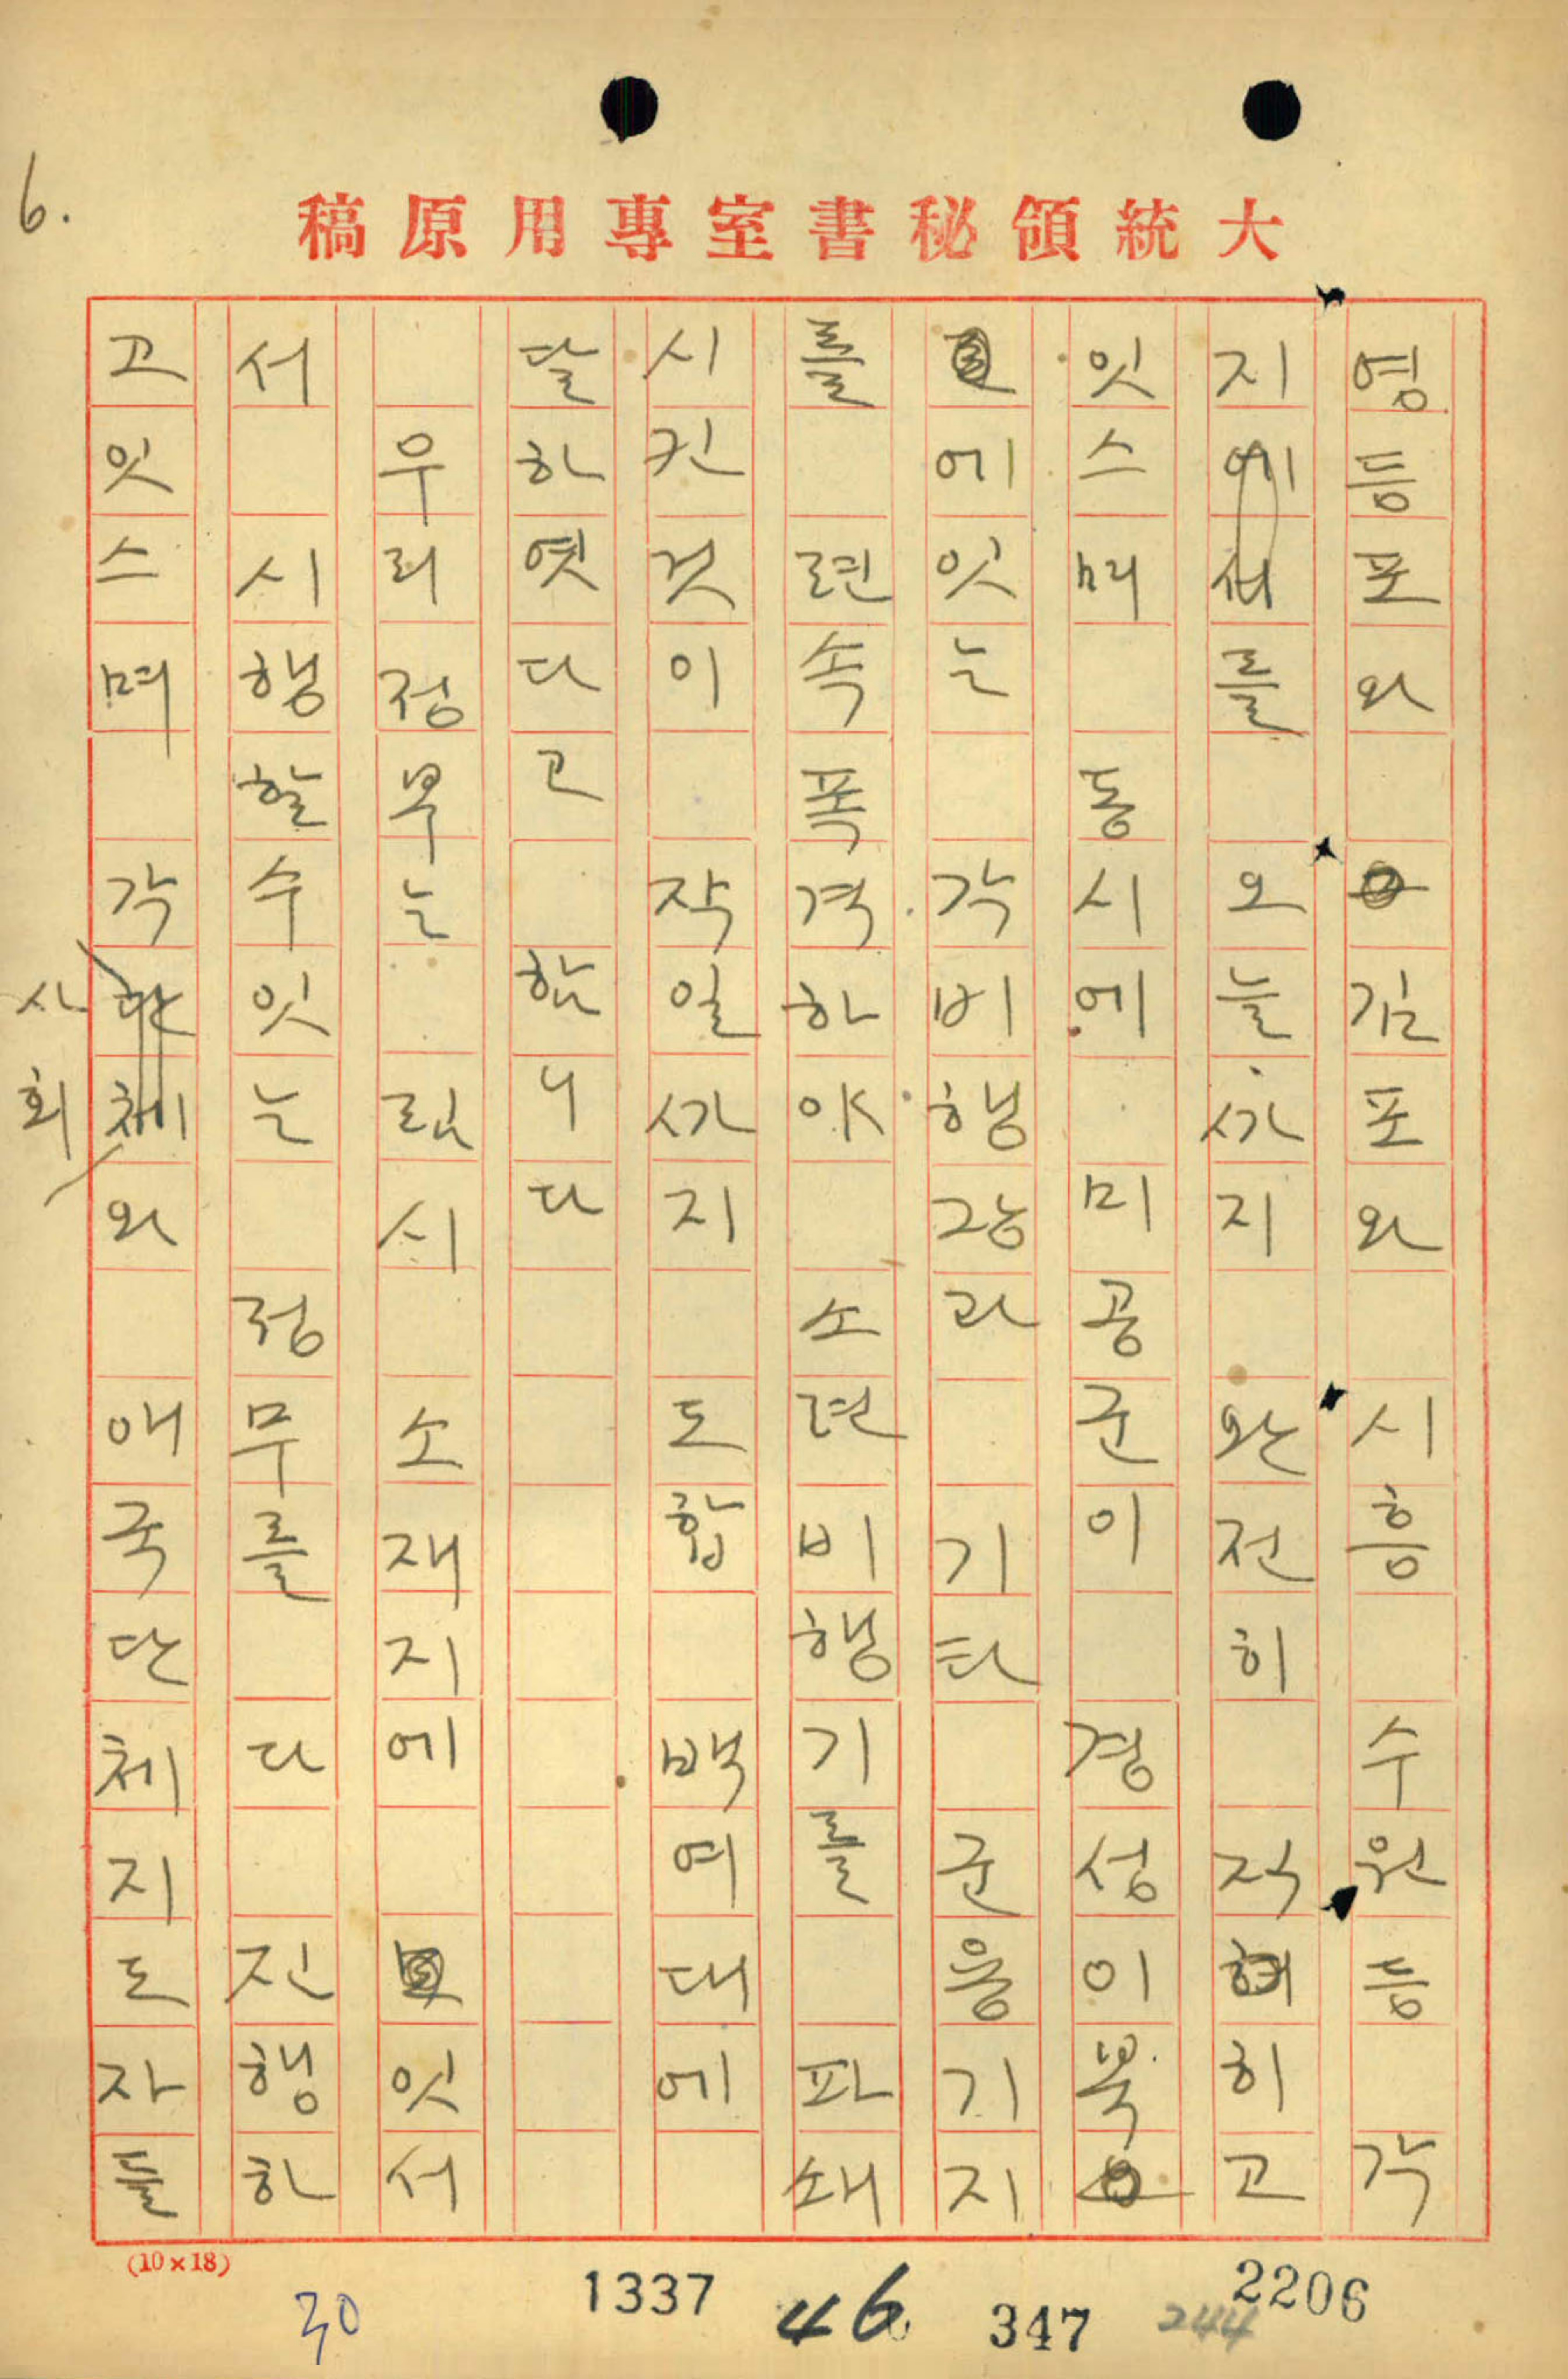 6.
大統領秘書室專用原稿
영등포와 김포와 시흥 수원등 각
지를 오늘 ᄭᅡ지 완전히 직히고
잇스며 동시에 미공군이 경성이북
에잇는 각비행장과 기타 군용기지
를 련속폭격하야 소련비행기를 파쇄
시킨것이 작일ᄭᅡ지 도합 백여대에
달하엿다고 함니다
우리정부는 림시 소재지에 잇서
서 시행할수잇는 정무를 다 진행하
고잇스며 각사회와 애국단체지도자들
(10×18)
30 1337 46 347 244 2206